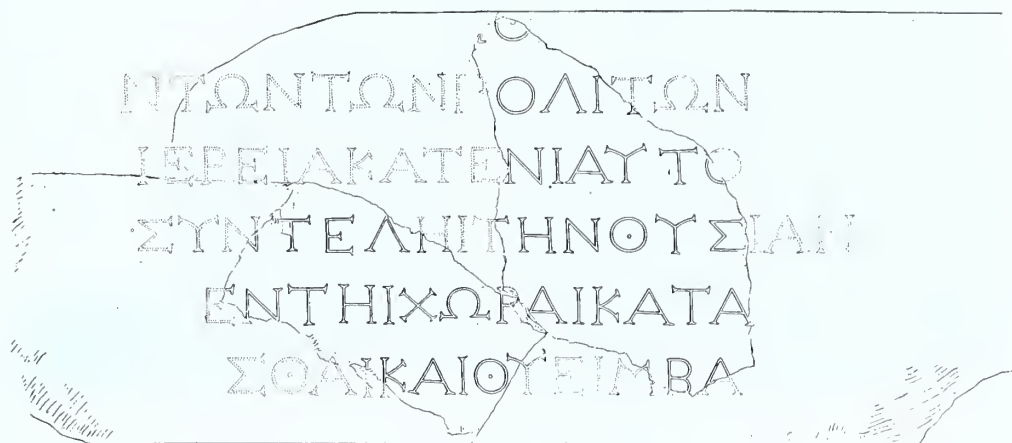 ΝΤΩΝΤΩΝΠΟΛΙΤΩΝ
ΙΕΡΕΙΑΚΑΤΕΝΙΑΥΤΟ
ΣΥΝΤΕΛΗΙΤΗΝΘΥΣΙΑΝ
ΕΝΤΗΙΧΩΡΑΙΚΑΤΑ
ΣΘΑΙΚΑΙΘΥΕΙΜΒΑ